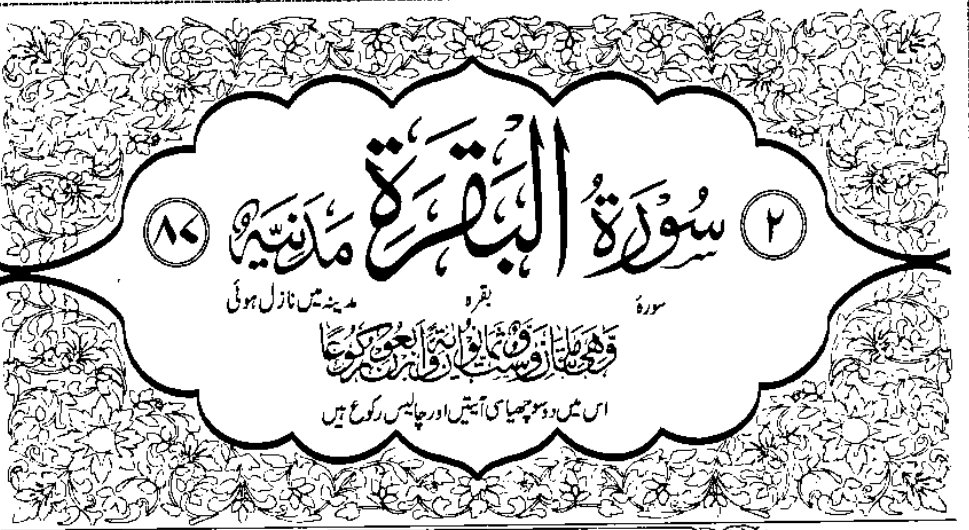 ٢ سُوْرَةُ الْبَقَرَةِ مَدَنِيَّةٌ ٨٧
سورۂ بقرہ مدینہ میں نازل ہوئی
وَّهِيَ مِائَتَانِ وَّسِتٌّ وَّثَمَانُوْنَ اٰيَةً وَّاَرْبَعُوْنَ رُكُوْعًا
اس میں دو سو چھیاسی آیتیں اور چالیس رکوع ہیں